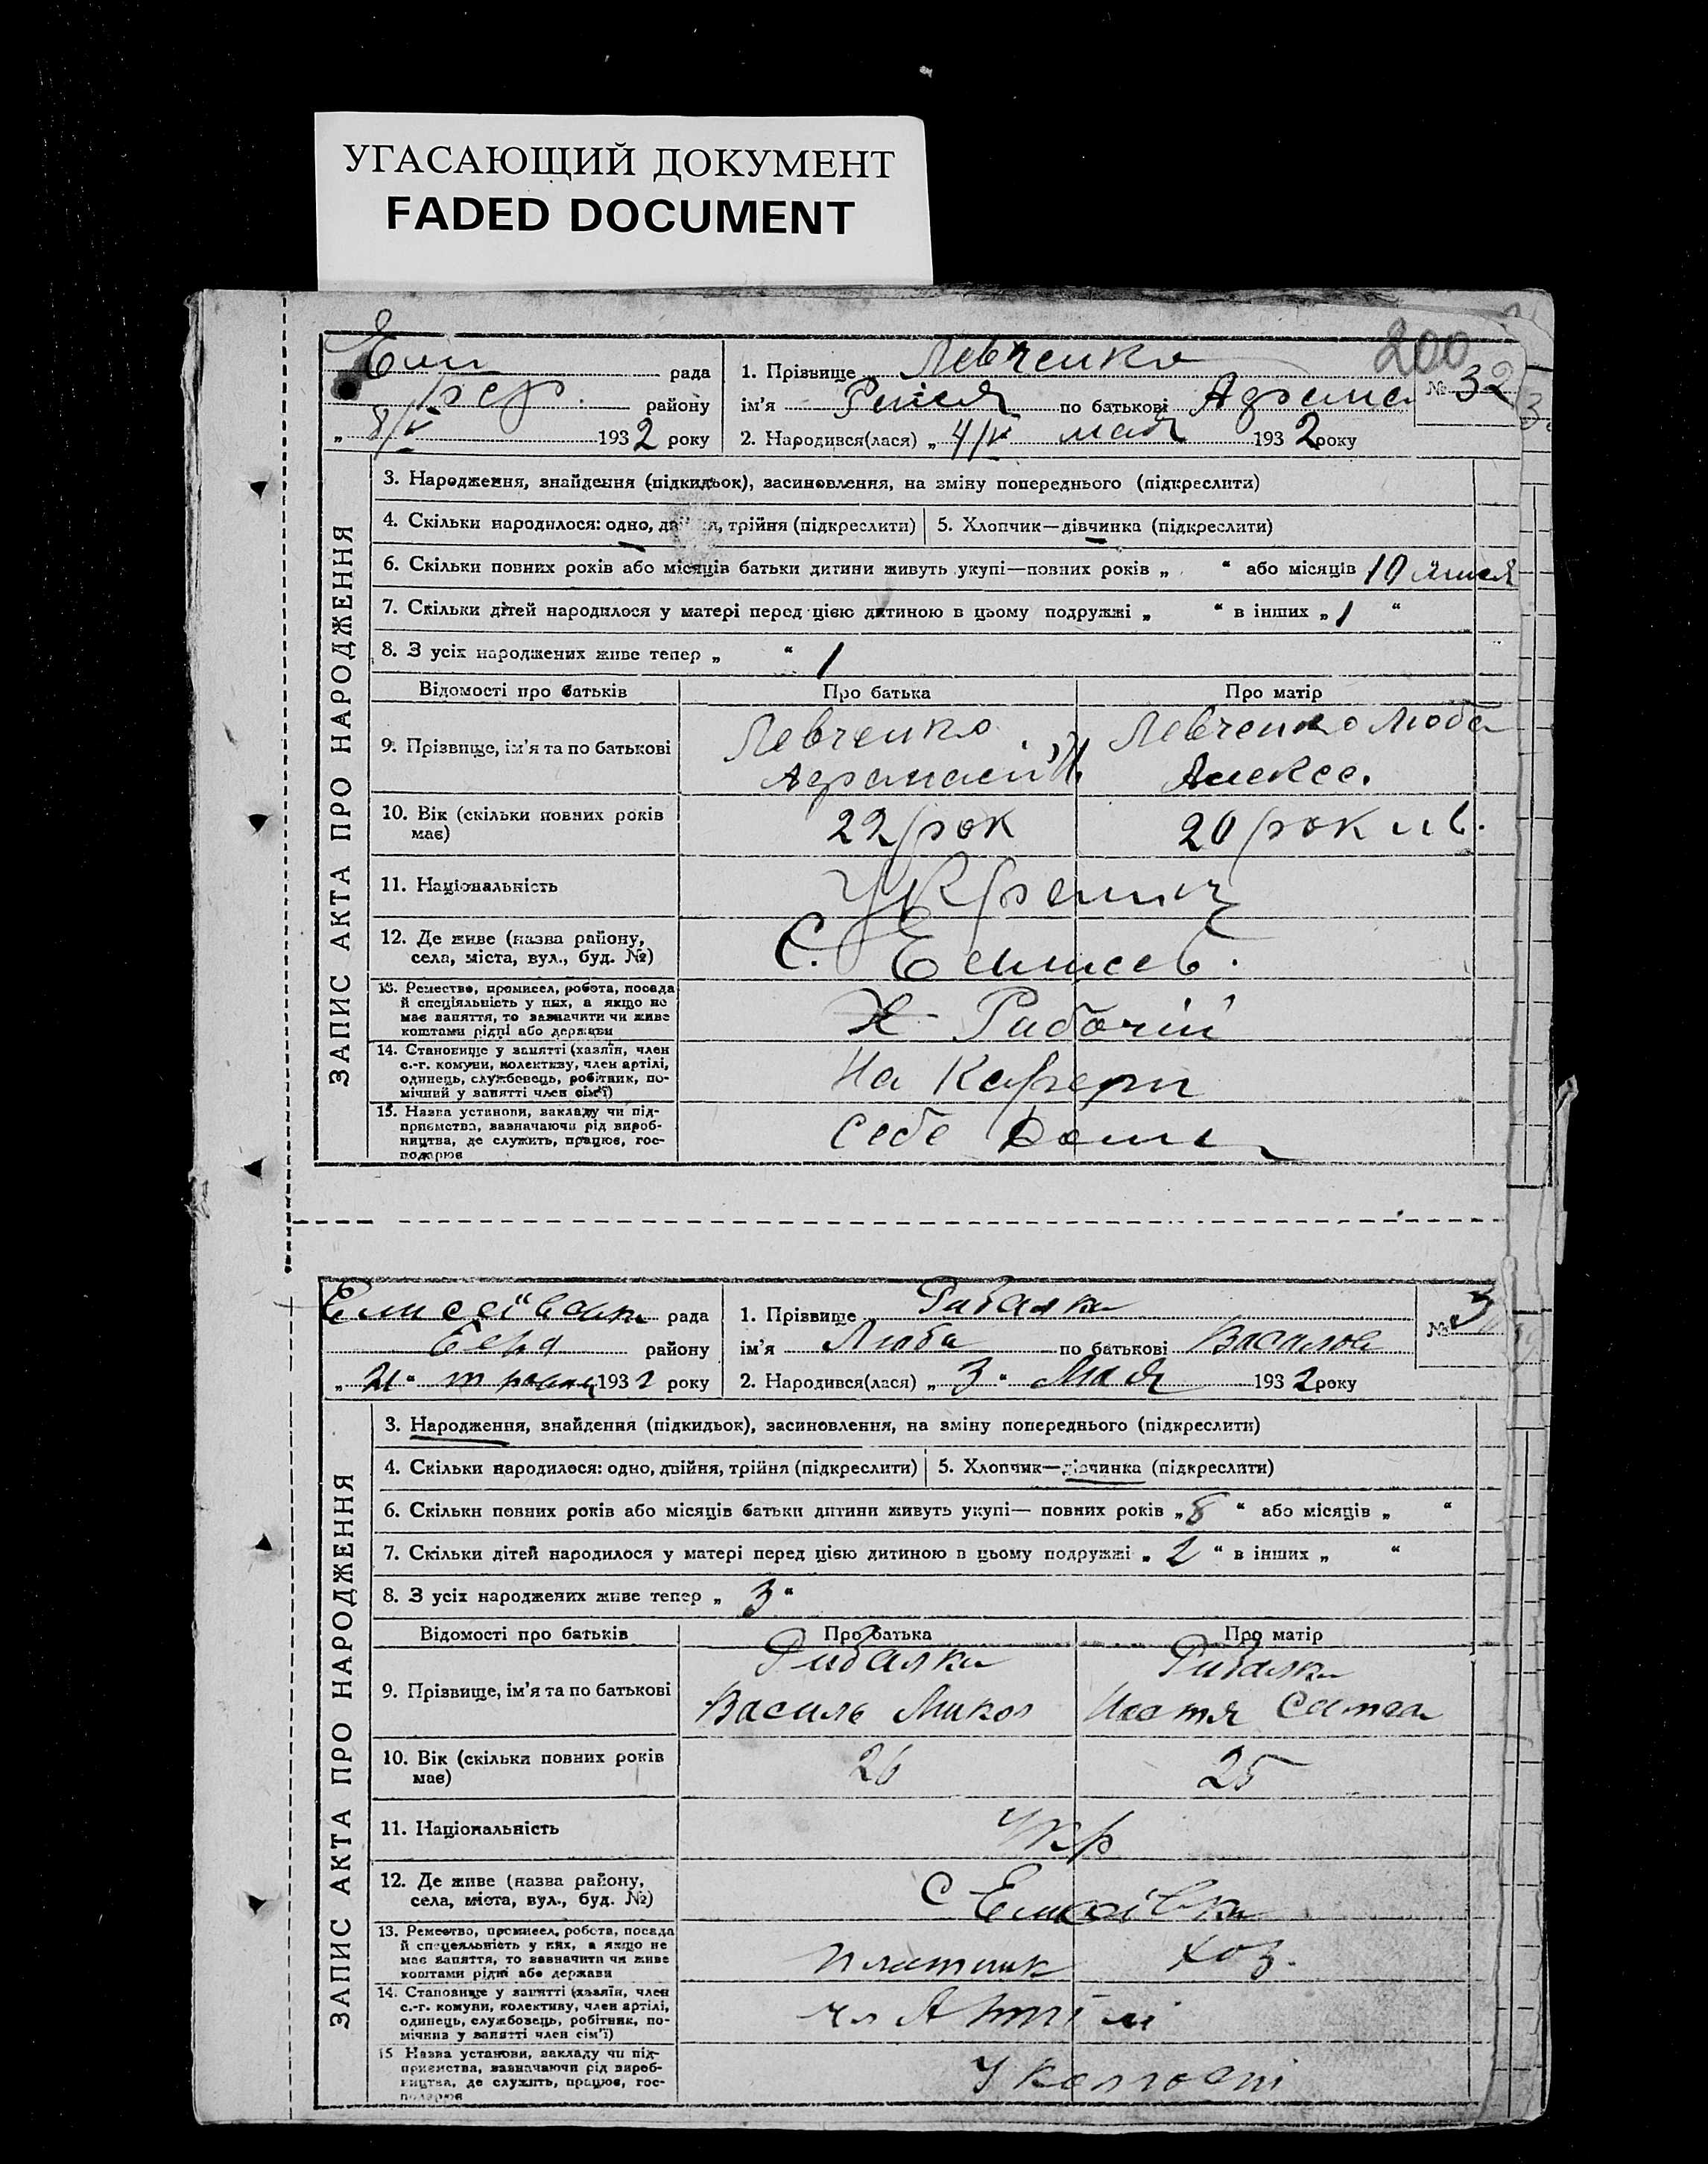 УГАСАЮЩИЙ ДОКУМЕНТ
FADED DOCUMENT
200
рада
району
„ 8/V 1932 року
1. Прізвище Левченко
ім'я Раїса по батькові
2. Народився(лася) „ 4/V мая 1932 року
№ 32
ЗАПИС АКТА ПРО НАРОДЖЕННЯ
3. Народження, знайдення (підкидьок), засиновлення, на зміну попереднього (підкреслити)
4. Скільки народилося: одно, двійня, трійня (підкреслити) 5. Хлопчик—дівчинка (підкреслити)
6. Скільки повних років або місяців батьки дитини живуть укупі—повних років „ “ або місяців 10
7. Скільки дітей народилося у матері перед цією дитиною в цьому подружжі „ “ в інших „ 1 “
8. З усіх народжених живе тепер „ “ 1
Відомості про батьків Про батька Про матір
9. Прізвище, ім'я та по батькові
Левченко Левченко Люба
Алексе.
10. Вік (скільки повних років має)
22 рок 20 рок
11. Національність
12. Де живе (назва району, села, міста, вул., буд. №)
С. Елисеев.
13. Ремество, промисел, робота, посада й спеціяльність у них, а якщо не має заняття, то зазначити чи живе коштами рідні або держави
Рабочий
14. Становище у занятті (хазяїн, член с.-г. комуни, колективу, член артілі, одинець, службовець, робітник, помічний у занятті член сім'ї)
На Карери
15. Назва установи, закладу чи підприємства, зазначаючи рід виробництва, де служить, працює, господарює
Себе
Елисеївська рада
Берд району
„ 21 “ травня 1932 року
1. Прізвище Рибалка
ім'я Люба по батькові Василов
2. Народився(лася) „ 3 “ Мая 1932 року
№ 3
ЗАПИС АКТА ПРО НАРОДЖЕННЯ
3. Народження, знайдення (підкидьок), засиновлення, на зміну попереднього (підкреслити)
4. Скільки народилося: одно, двійня, трійня (підкреслити) 5. Хлопчик—дівчинка (підкреслити)
6. Скільки повних років або місяців батьки дитини живуть укупі— повних років „ 8 “ або місяців „ “
7. Скільки дітей народилося у матері перед цією дитиною в цьому подружжі „ 2 “ в інших „ “
8. З усіх народжених живе тепер „ 3 “
Відомості про батьків Про батька Про матір
9. Прізвище, ім'я та по батькові
Рибалка Рибалка
Василь Микол Настя
10. Вік (скільки повних років має)
26 25
11. Національність
Укр
12. Де живе (назва району, села, міста, вул., буд. №)
С Елисеївка
13. Ремество, промисел, робота, посада й спецеяльність у них, а якщо не має заняття, то зазначити чи живе коштами рідні або держави
плотник хоз.
14. Становище у занятті (хазяїн, член с.-г. комуни, колективу, член артілі, одинець, службовець, робітник, помічник у занятті член сім'ї)
чл Артілі
15 Назва установи, закладу чи підприємства, зазначаючи рід виробництва, де служить, працює, господарює
У колгоспі